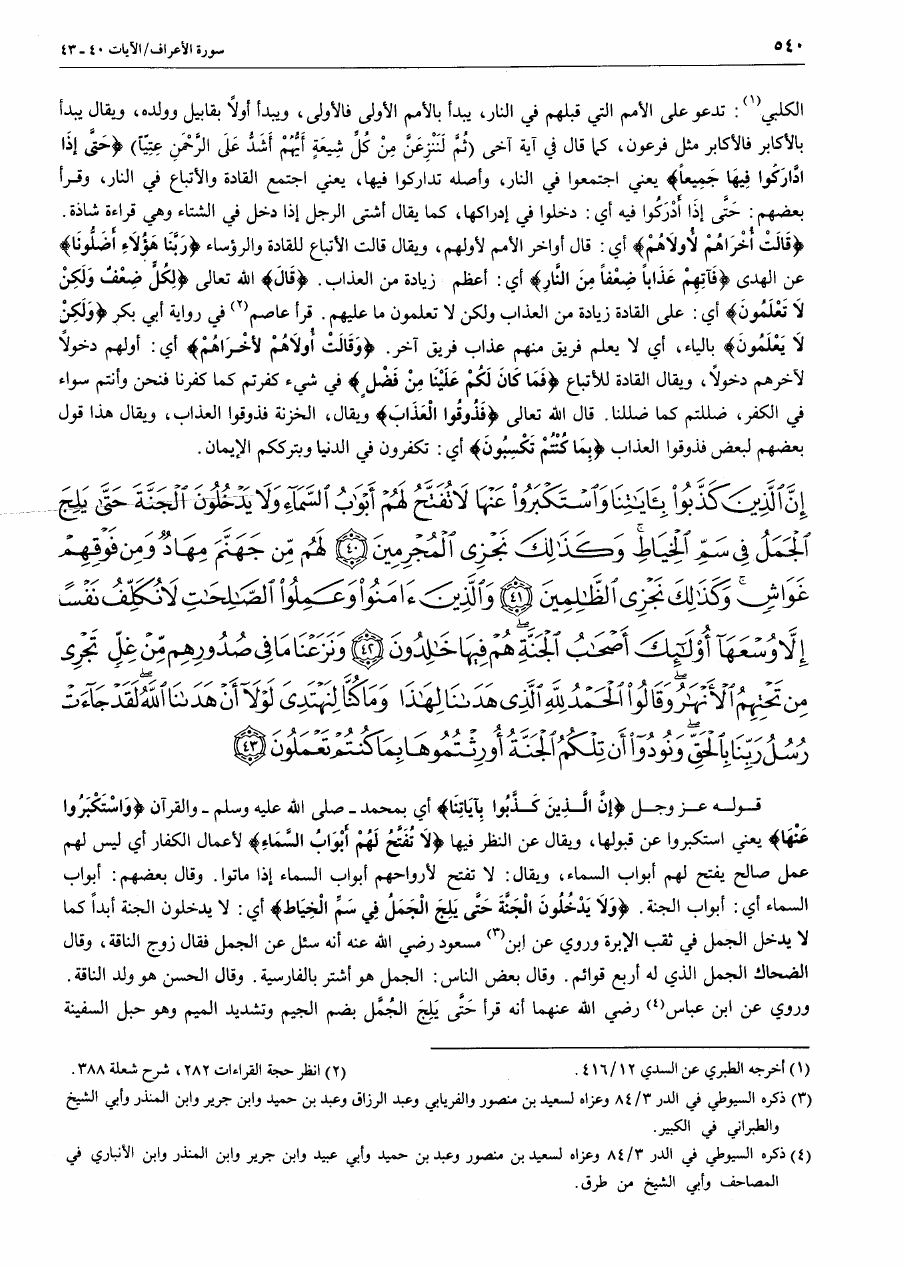 ٥٤٠
سورة الأعراف/الآيات ٤٠ ـ ٤٣
الكلبي(١): تدعو على الأمم التي قبلهم في النار، يبدأ بالأمم الأولى فالأولى، ويبدأ أولاً بقابيل وولده، ويقال يبدأ
بالأكابر فالأكابر مثل فرعون، كما قال في آية أخرى (ثُمَّ لَنَنْزِعَنَّ مِنْ كُلِّ شِيعَةٍ أَيُّهُمْ أَشَدُّ عَلَى الرَّحْمٰنِ عِتِيّاً) ﴿حَتَّى إِذَا
ادَّارَكُوا فِيهَا جَمِيعاً﴾ يعني اجتمعوا في النار، وأصله تداركوا فيها، يعني اجتمع القادة والأتباع في النار، وقرأ
بعضهم: حَتَّى إِذَا أَدْرَكُوا فيه أي: دخلوا في إدراكها، كما يقال أشتى الرجل إذا دخل في الشتاء وهي قراءة شاذة.
﴿قَالَتْ أُخْرَاهُمْ لأُولاَهُمْ﴾ أي: قال أواخر الأمم لأولهم، ويقال قالت الأتباع للقادة والرؤساء ﴿رَبَّنَا هَؤُلاَءِ أَضَلُّونَا﴾
عن الهدى ﴿فَآتِهِمْ عَذَاباً ضِعْفاً مِنَ النَّارِ﴾ أي: أعظم زيادة من العذاب. ﴿قَالَ﴾ الله تعالى ﴿لِكُلٍّ ضِعْفٌ وَلَكِنْ
لَا تَعْلَمُونَ﴾ أي: على القادة زيادة من العذاب ولكن لا تعلمون ما عليهم. قرأ عاصم(٢) في رواية أبي بكر ﴿وَلَكِنْ
لَا يَعْلَمُونَ﴾ بالياء، أي لا يعلم فريق منهم عذاب فريق آخر. ﴿وَقَالَتْ أُولَاهُمْ لأُخْرَاهُمْ﴾ أي: أولهم دخولاً
لآخرهم دخولاً، ويقال القادة للأتباع ﴿فَمَا كَانَ لَكُمْ عَلَيْنَا مِنْ فَضْلٍ﴾ في شيء كفرتم كما كفرنا فنحن وأنتم سواء
في الكفر، ضللتم كما ضللنا. قال الله تعالى ﴿فَذُوقُوا الْعَذَابَ﴾ ويقال، الخزنة فذوقوا العذاب، ويقال هذا قول
بعضهم لبعض فذوقوا العذاب ﴿بِمَا كُنْتُمْ تَكْسِبُونَ﴾ أي: تكفرون في الدنيا وبترككم الإيمان.
إِنَّ ٱلَّذِينَ كَذَّبُوا۟ بِـَٔايَـٰتِنَا وَٱسْتَكْبَرُوا۟ عَنْهَا لَا تُفَتَّحُ لَهُمْ أَبْوَٰبُ ٱلسَّمَآءِ وَلَا يَدْخُلُونَ ٱلْجَنَّةَ حَتَّىٰ يَلِجَ
ٱلْجَمَلُ فِى سَمِّ ٱلْخِيَاطِ ۚ وَكَذَٰلِكَ نَجْزِى ٱلْمُجْرِمِينَ ﴿٤٠﴾ لَهُم مِّن جَهَنَّمَ مِهَادٌ وَمِن فَوْقِهِمْ
غَوَاشٍ ۚ وَكَذَٰلِكَ نَجْزِى ٱلظَّـٰلِمِينَ ﴿٤١﴾ وَٱلَّذِينَ ءَامَنُوا۟ وَعَمِلُوا۟ ٱلصَّـٰلِحَـٰتِ لَا نُكَلِّفُ نَفْسًا
إِلَّا وُسْعَهَآ أُو۟لَـٰٓئِكَ أَصْحَـٰبُ ٱلْجَنَّةِ ۖ هُمْ فِيهَا خَـٰلِدُونَ ﴿٤٢﴾ وَنَزَعْنَا مَا فِى صُدُورِهِم مِّنْ غِلٍّ تَجْرِى
مِن تَحْتِهِمُ ٱلْأَنْهَـٰرُ ۖ وَقَالُوا۟ ٱلْحَمْدُ لِلَّهِ ٱلَّذِى هَدَىٰنَا لِهَـٰذَا وَمَا كُنَّا لِنَهْتَدِىَ لَوْلَآ أَنْ هَدَىٰنَا ٱللَّهُ ۖ لَقَدْ جَآءَتْ
رُسُلُ رَبِّنَا بِٱلْحَقِّ ۖ وَنُودُوٓا۟ أَن تِلْكُمُ ٱلْجَنَّةُ أُورِثْتُمُوهَا بِمَا كُنتُمْ تَعْمَلُونَ ﴿٤٣﴾
قوله عز وجل ﴿إِنَّ الَّذِينَ كَذَّبُوا بِآيَاتِنَا﴾ أي بمحمد ـ صلى الله عليه وسلم ـ والقرآن ﴿وَاسْتَكْبَرُوا
عَنْهَا﴾ يعني استكبروا عن قبولها، ويقال عن النظر فيها ﴿لَا تُفَتَّحُ لَهُمْ أَبْوَابُ السَّمَاءِ﴾ لأعمال الكفار أي ليس لهم
عمل صالح يفتح لهم أبواب السماء، ويقال: لا تفتح لأرواحهم أبواب السماء إذا ماتوا. وقال بعضهم: أبواب
السماء أي: أبواب الجنة. ﴿وَلَا يَدْخُلُونَ الْجَنَّةَ حَتَّى يَلِجَ الْجَمَلُ فِي سَمِّ الْخِيَاط﴾ أي: لا يدخلون الجنة أبداً كما
لا يدخل الجمل في ثقب الإبرة وروي عن ابن(٣) مسعود رضي الله عنه أنه سئل عن الجمل فقال زوج الناقة، وقال
الضحاك الجمل الذي له أربع قوائم. وقال بعض الناس: الجمل هو أشتر بالفارسية. وقال الحسن هو ولد الناقة.
وروي عن ابن عباس(٤) رضي الله عنهما أنه قرأ حَتَّى يَلِجَ الْجُمَّل بضم الجيم وتشديد الميم وهو حبل السفينة
(١) أخرجه الطبري عن السدي ٤١٦/١٢.
(٢) انظر حجة القراءات ٢٨٢، شرح شعلة ٣٨٨.
(٣) ذكره السيوطي في الدر ٨٤/٣ وعزاه لسعيد بن منصور والفريابي وعبد الرزاق وعبد بن حميد وابن جرير وابن المنذر وأبي الشيخ
والطبراني في الكبير.
(٤) ذكره السيوطي في الدر ٨٤/٣ وعزاه لسعيد بن منصور وعبد بن حميد وأبي عبيد وابن جرير وابن المنذر وابن الأنباري في
المصاحف وأبي الشيخ من طرق.